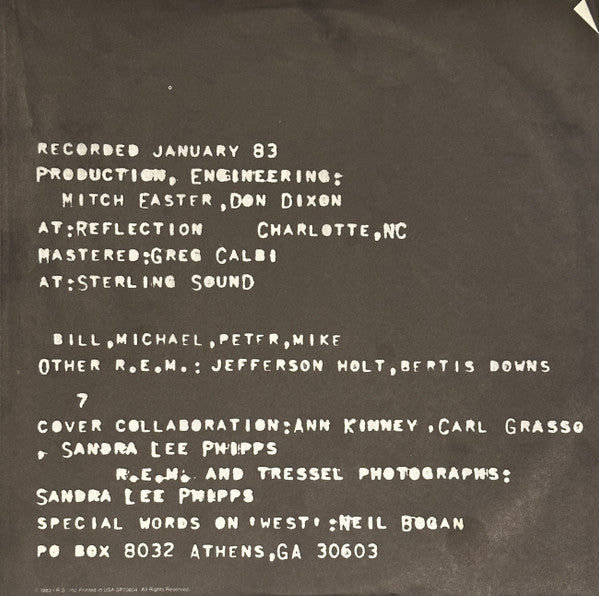 RECORDED JANUARY 83
PRODUCTION, ENGINEERING:
MITCH EASTER,DON DIXON
AT:REFLECTION CHARLOTTE,NC
MASTERED:GREG CALBI
AT:STERLING SOUND
BILL,MICHAEL,PETER,MIKE
OTHER R.E.M.: JEFFERSON HOLT,BERTIS DOWNS
7
COVER COLLABORATION:ANN KINNEY,CARL GRASSO
, SANDRA LEE PHIPPS
R.E.M. AND TRESSEL PHOTOGRAPHS:
SANDRA LEE PHIPPS
SPECIAL WORDS ON 'WEST':NEIL BOGAN
PO BOX 8032 ATHENS,GA 30603
© 1983 I.R.S., Inc. Printed in USA SP70604 All Rights Reserved.